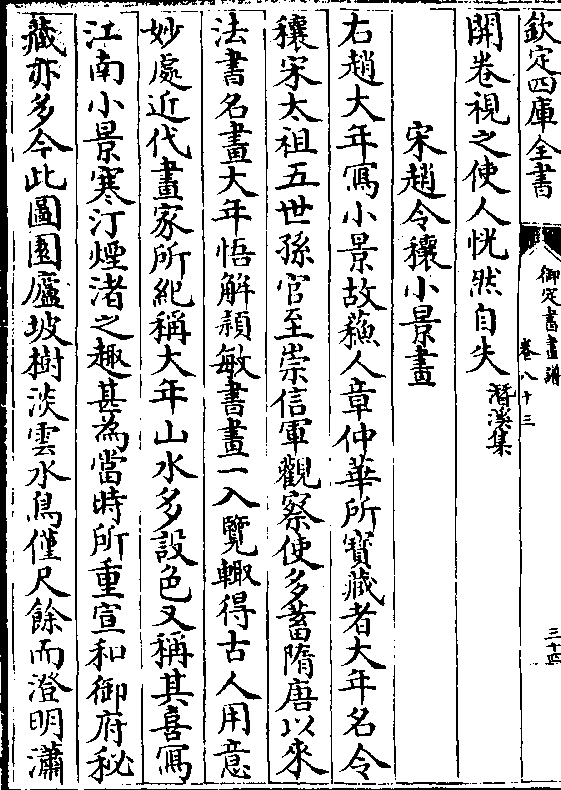 欽定四庫全書
御定書畫譜
卷八十三
三十四
開卷視之使人恍然自失潛溪集
宋趙令穰小景畫
右趙大年寫小景故蘓人章仲華所寳藏者大年名令
穰宋太祖五世孫官至崇信軍觀察使多蓄隋唐以來
法書名畫大年悟解頴敏書畫一入覽輙得古人用意
妙處近代畫家所紀稱大年山水多設色又稱其喜寫
江南小景寒汀煙渚之趣甚為當時所重宣和御府秘
藏亦多今此圖園廬坡樹淡雲水鳥僅尺餘而澄明瀟